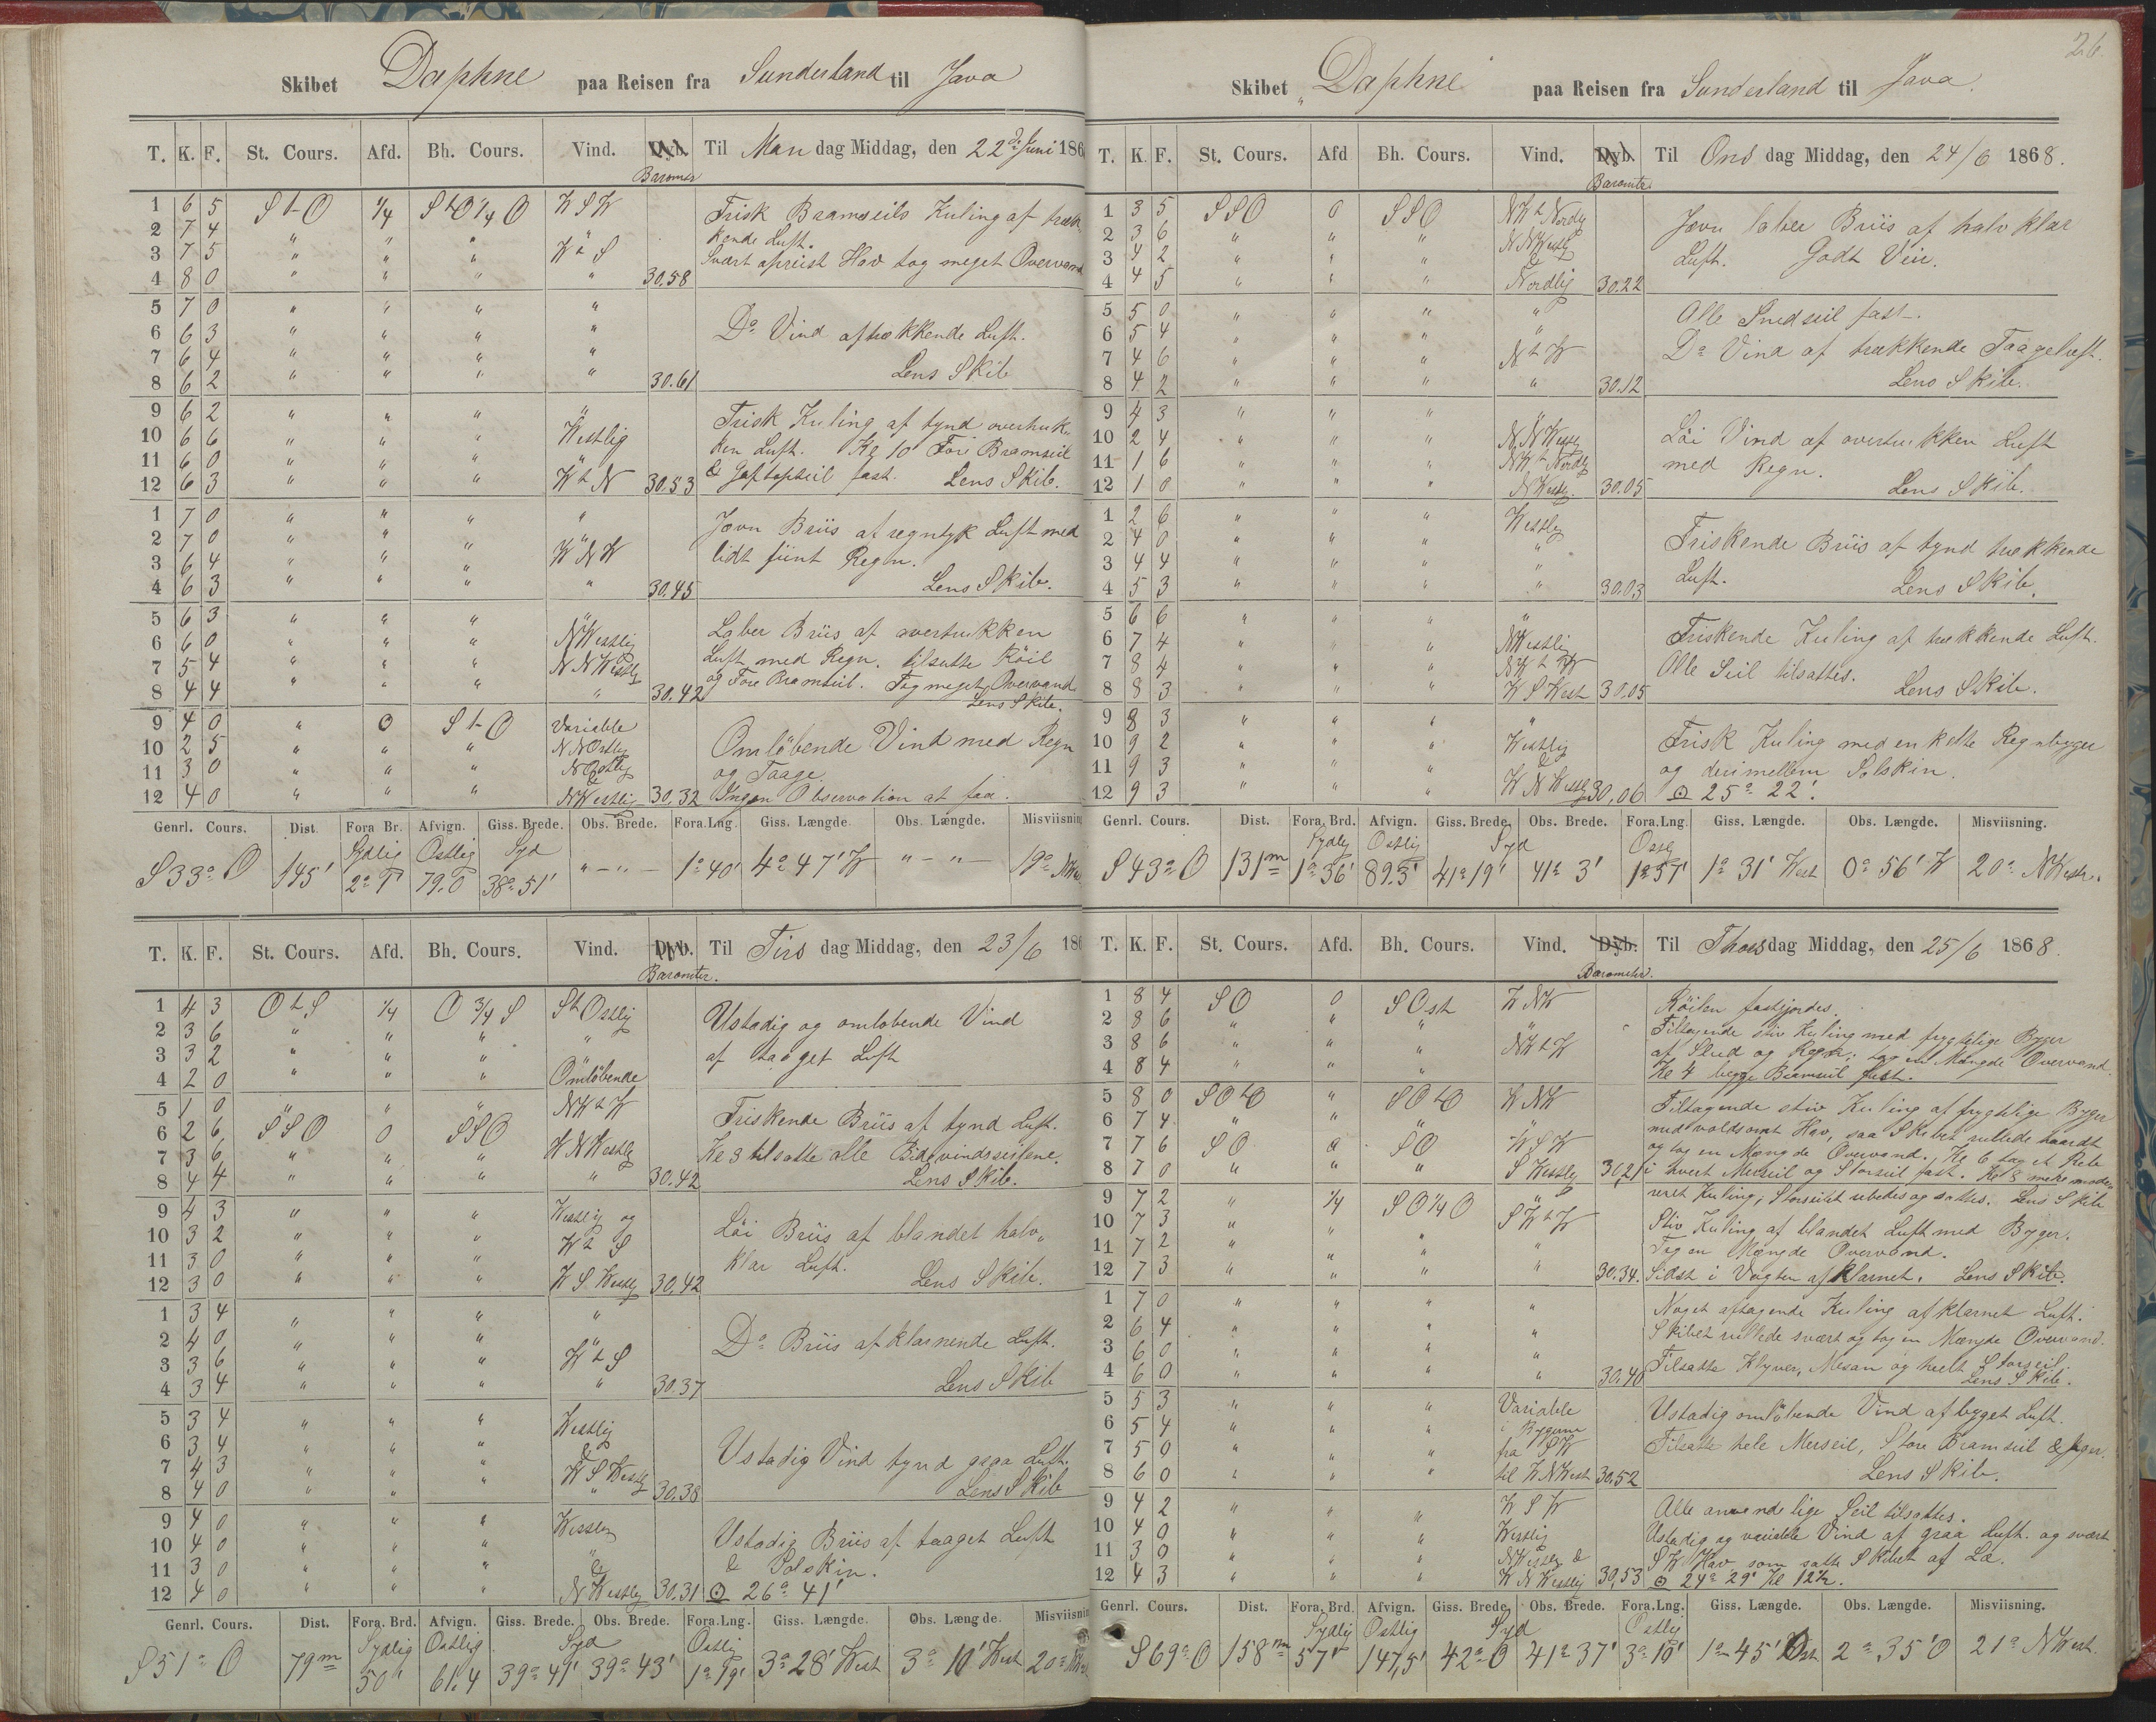 Skibet Daphne paa Reisen fra Sunderland til Java
T. K. F. St. Cours. Afd. Bh. Cours. Vind. Dyb. Barometer Til Mandag Middag, den 22de Juni 186
1 6 5 S t O 1/4 S t O 1/4 O W S W Frisk Bramseils Kuling af træk-
2 7 4 " " " " kende Luft.
3 7 5 " " " W t S Svært opreist Hav tog meget Overvand
4 8 0 " " " " 30.58
5 7 0 " " " "
6 6 3 " " " " Do Vind af trækkende Luft.
7 6 4 " " " "
8 6 2 " " " " 30.61 Lens Skib
9 6 2 " " " " Frisk Kuling af tynd overtruk-
10 6 6 " " " Westlig ken Luft. Kl 10 Fore Bramseil
11 6 0 " " " & Gaftopseil fast. Lens Skib.
12 6 3 " " " W t N 30.53
1 7 0 " " " " Jevn Briis af regntyk Luft med
2 7 0 " " " " lidt fiint Regn.
3 6 4 " " " W N W
4 6 3 " " " " 30.45 Lens Skib.
5 6 3 " " " " Laber Briis af overtrukken
6 6 0 " " " NWestlig Luft med Regn. tilsatte Röil
7 5 4 " " " NNWestlig og Fore Bramseil. Tog meget Overvand
8 4 4 " " " " 30.42 Lens Skib.
9 4 0 " 0 S t O Variable Omløbende Vind med Regn
10 2 5 " " " NNOstlig og Taage.
11 3 0 " " " NOstlig &
12 4 0 " " " NWestlig 30.32 Ingen Observation at faa.
Genrl. Cours. Dist. Fora Br. Afvign. Giss. Brede. Obs. Brede. Fora.Lng. Giss. Længde. Obs. Længde. Misviisning
Sydlig Ostlig Syd
S 33° O 145' 79.0 38° 51' "-"- 1° 40' 4° 47' W "-"- 19°
T. K. F. St. Cours. Afd. Bh. Cours. Vind. Dyb. Barometer. Til Tirsdag Middag, den 23/6 186
1 4 3 O t S 1/4 O 3/4 S S t Ostlig Ustadig og omløbende Vind
2 3 6 " " " " af taaget Luft
3 3 2 " " " "
4 2 0 " " " Omløbende
5 1 0 " " " NW t W Friskende Briis af tynd Luft.
6 2 6 S S O 0 S S O " Kl 8 tilsatte alle Bidevindsseilene.
7 3 6 " " " W N Westlig
8 4 4 " " " " 30.42 Lens Skib.
9 4 3 " " " Westlig og Löi Briis af blandet halv-
10 3 2 " " " W t S klar Luft.
11 3 0 " " "
12 3 0 " " " W S Westlig 30.42 Lens Skib.
1 3 4 " " " " Do Briis af klarnende Luft.
2 4 0 " " " "
3 3 6 " " " W t S
4 3 4 " " " " 30.37 Lens Skib
5 3 4 " " " Westlig Ustadig Vind tynd graa Luft.
6 3 4 " " " &
7 4 3 " " " W S Westlig
8 4 0 " " " " 30.38 Lens Skib
9 4 0 " " " Westlig Ustadig Briis af taaget Luft
10 4 0 " " " " & Solskin.
11 3 0 " " " &
12 4 0 " " " N Westlig 30.31 ⊙ 26° 41'
Genrl. Cours. Dist. Fora. Brd. Afvign. Giss. Brede. Obs. Brede. Fora.Lng. Giss. Længde. Obs. Længde. Misviisnin
Sydlig Ostlig Syd Ostlig
S 51° O 79m 50' 61.4 39° 41' 39° 43' 1° 19' 3° 28' West 3° 10' West 20°
26.
Skibet "Daphne paa Reisen fra Sunderland til Java.
T. K. F. St. Cours. Afd Bh. Cours. Vind. Dyb. Barometer Til Onsdag Middag, den 24/6 1868.
1 3 5 S S O 0 S S O NW t Nordlig Jevn laber Briis af halv klar
2 3 6 " " " NNWestlig Luft. Godt Veir.
3 4 2 " " " &
4 4 5 " " " Nordlig 30.22
5 5 0 " " " " Alle Snedseil fast.
6 5 4 " " " " Do Vind af trækkende Taageluft.
7 4 6 " " " N t W
8 4 2 " " " " 30.12 Lens Skib.
9 4 3 " " " " Löi Vind af overtrukken Luft
10 2 4 " " " N. N Westlig med Regn.
11 1 6 " " " NW t Nordlig
12 1 0 " " " NWestlig. 30.05 Lens Skib.
1 2 6 " " " Westlig Friskende Briis af tynd trækkende
2 4 0 " " " " Luft.
3 4 4 " " " "
4 5 3 " " " " 30.03 Lens Skib.
5 6 6 " " " " Friskende Kuling af trækkende Luft.
6 7 4 " " " NWestlig Alle Seil tilsattes.
7 8 4 " " " NW t W
8 8 3 " " " W S West 30.05 Lens Skib.
9 8 3 " " " " Frisk Kuling med enkelte Regnbyger
10 9 2 " " " Westlig og derimellem Solskin.
11 9 3 " " " &
12 9 3 " " " W N Westlig 30,06 ⊙ 25° 22'.
Genrl. Cours. Dist. Fora. Brd. Afvign. Giss. Brede. Obs. Brede. Fora.Lng. Giss. Længde. Obs. Længde. Misviisning.
Sydlig Ostlig Syd Ostlig
S 43° O 131m 1° 36' 89.3' 41° 19' 41° 3' 1° 57' 1° 31' West 0° 56' W 20° NWestr.
T. K. F. St. Cours. Afd. Bh. Cours. Vind. Dyb. Barometer. Til Thorsdag Middag, den 25/6 1868.
1 8 4 S O 0 S Ost W NW Röilen fastgjordes.
2 8 6 " " " " Tiltagende stiv Kuling med frygtelige Byger
3 8 6 " " " NW t W af Slud og Regn; tog en Mængde Overvand.
4 8 4 " " " Kl 4 begge Bramseil fast.
5 8 0 S O t O " S O t O W NW Tiltagende stiv Kuling af frygtelige Byger
6 7 4 " " " " med voldsomt Hav, saa Skibet rullede haardt
7 7 6 S O " S O W S W og tog en Mængde Overvand. Kl 6 tog et Reb
8 7 0 " " " S Westlig 30,21 i hvert Merseil og Storseil fast. Kl 8 mere mode-
9 7 2 " 1/4 S O 1/4 O " reret Kuling; Storseilet rebedes og sattes. Lens Skib
10 7 3 " " " S W t W Stiv Kuling af blandet Luft med Byger.
11 7 2 " " " " Tog en Mængde Overvand.
12 7 3 " " " " 30.34. Sidst i Vagten afklarnet. Lens Skib.
1 7 0 " " " " Noget aftagende Kuling afklarnet Luft.
2 6 4 " " " " Skibet rullede svært og tog en Mængde Overvand.
3 6 0 " " " " Tilsatte Klyver, Mesan og heelt Storseil.
4 6 0 " " " " 30.40 Lens Skib.
5 5 3 " " " Variable Ustadig omløbende Vind af byget Luft.
6 5 4 " " " i Bygerne
7 5 0 " " " fra S W Tilsatte hele Merseil, Store Bramseil & Jager.
8 6 0 " " " til W N West 30,52 Lens Skib.
9 4 2 " " " W S W Alle anvendelige Seil tilsattes.
10 4 0 " " " Westlig Ustadig og variable Vind af graa Luft. og svært
11 3 0 " " " NWestlig & S W Hav som satte Skibet af Læ.
12 4 3 " " " W N Westlig 30,53 ⊙ 24° 29' Kl 12½.
Genrl. Cours. Dist. Fora. Brd. Afvign. Giss. Brede. Obs. Brede. Fora.Lng. Giss. Længde. Obs. Længde. Misviisning.
Sydlig Ostlig Syd Ostlig
S 69° O 158m 57' 147,5' 42° 0 41° 37' 3° 18' 1° 45' Ost 2° 35' O 21° NWest.